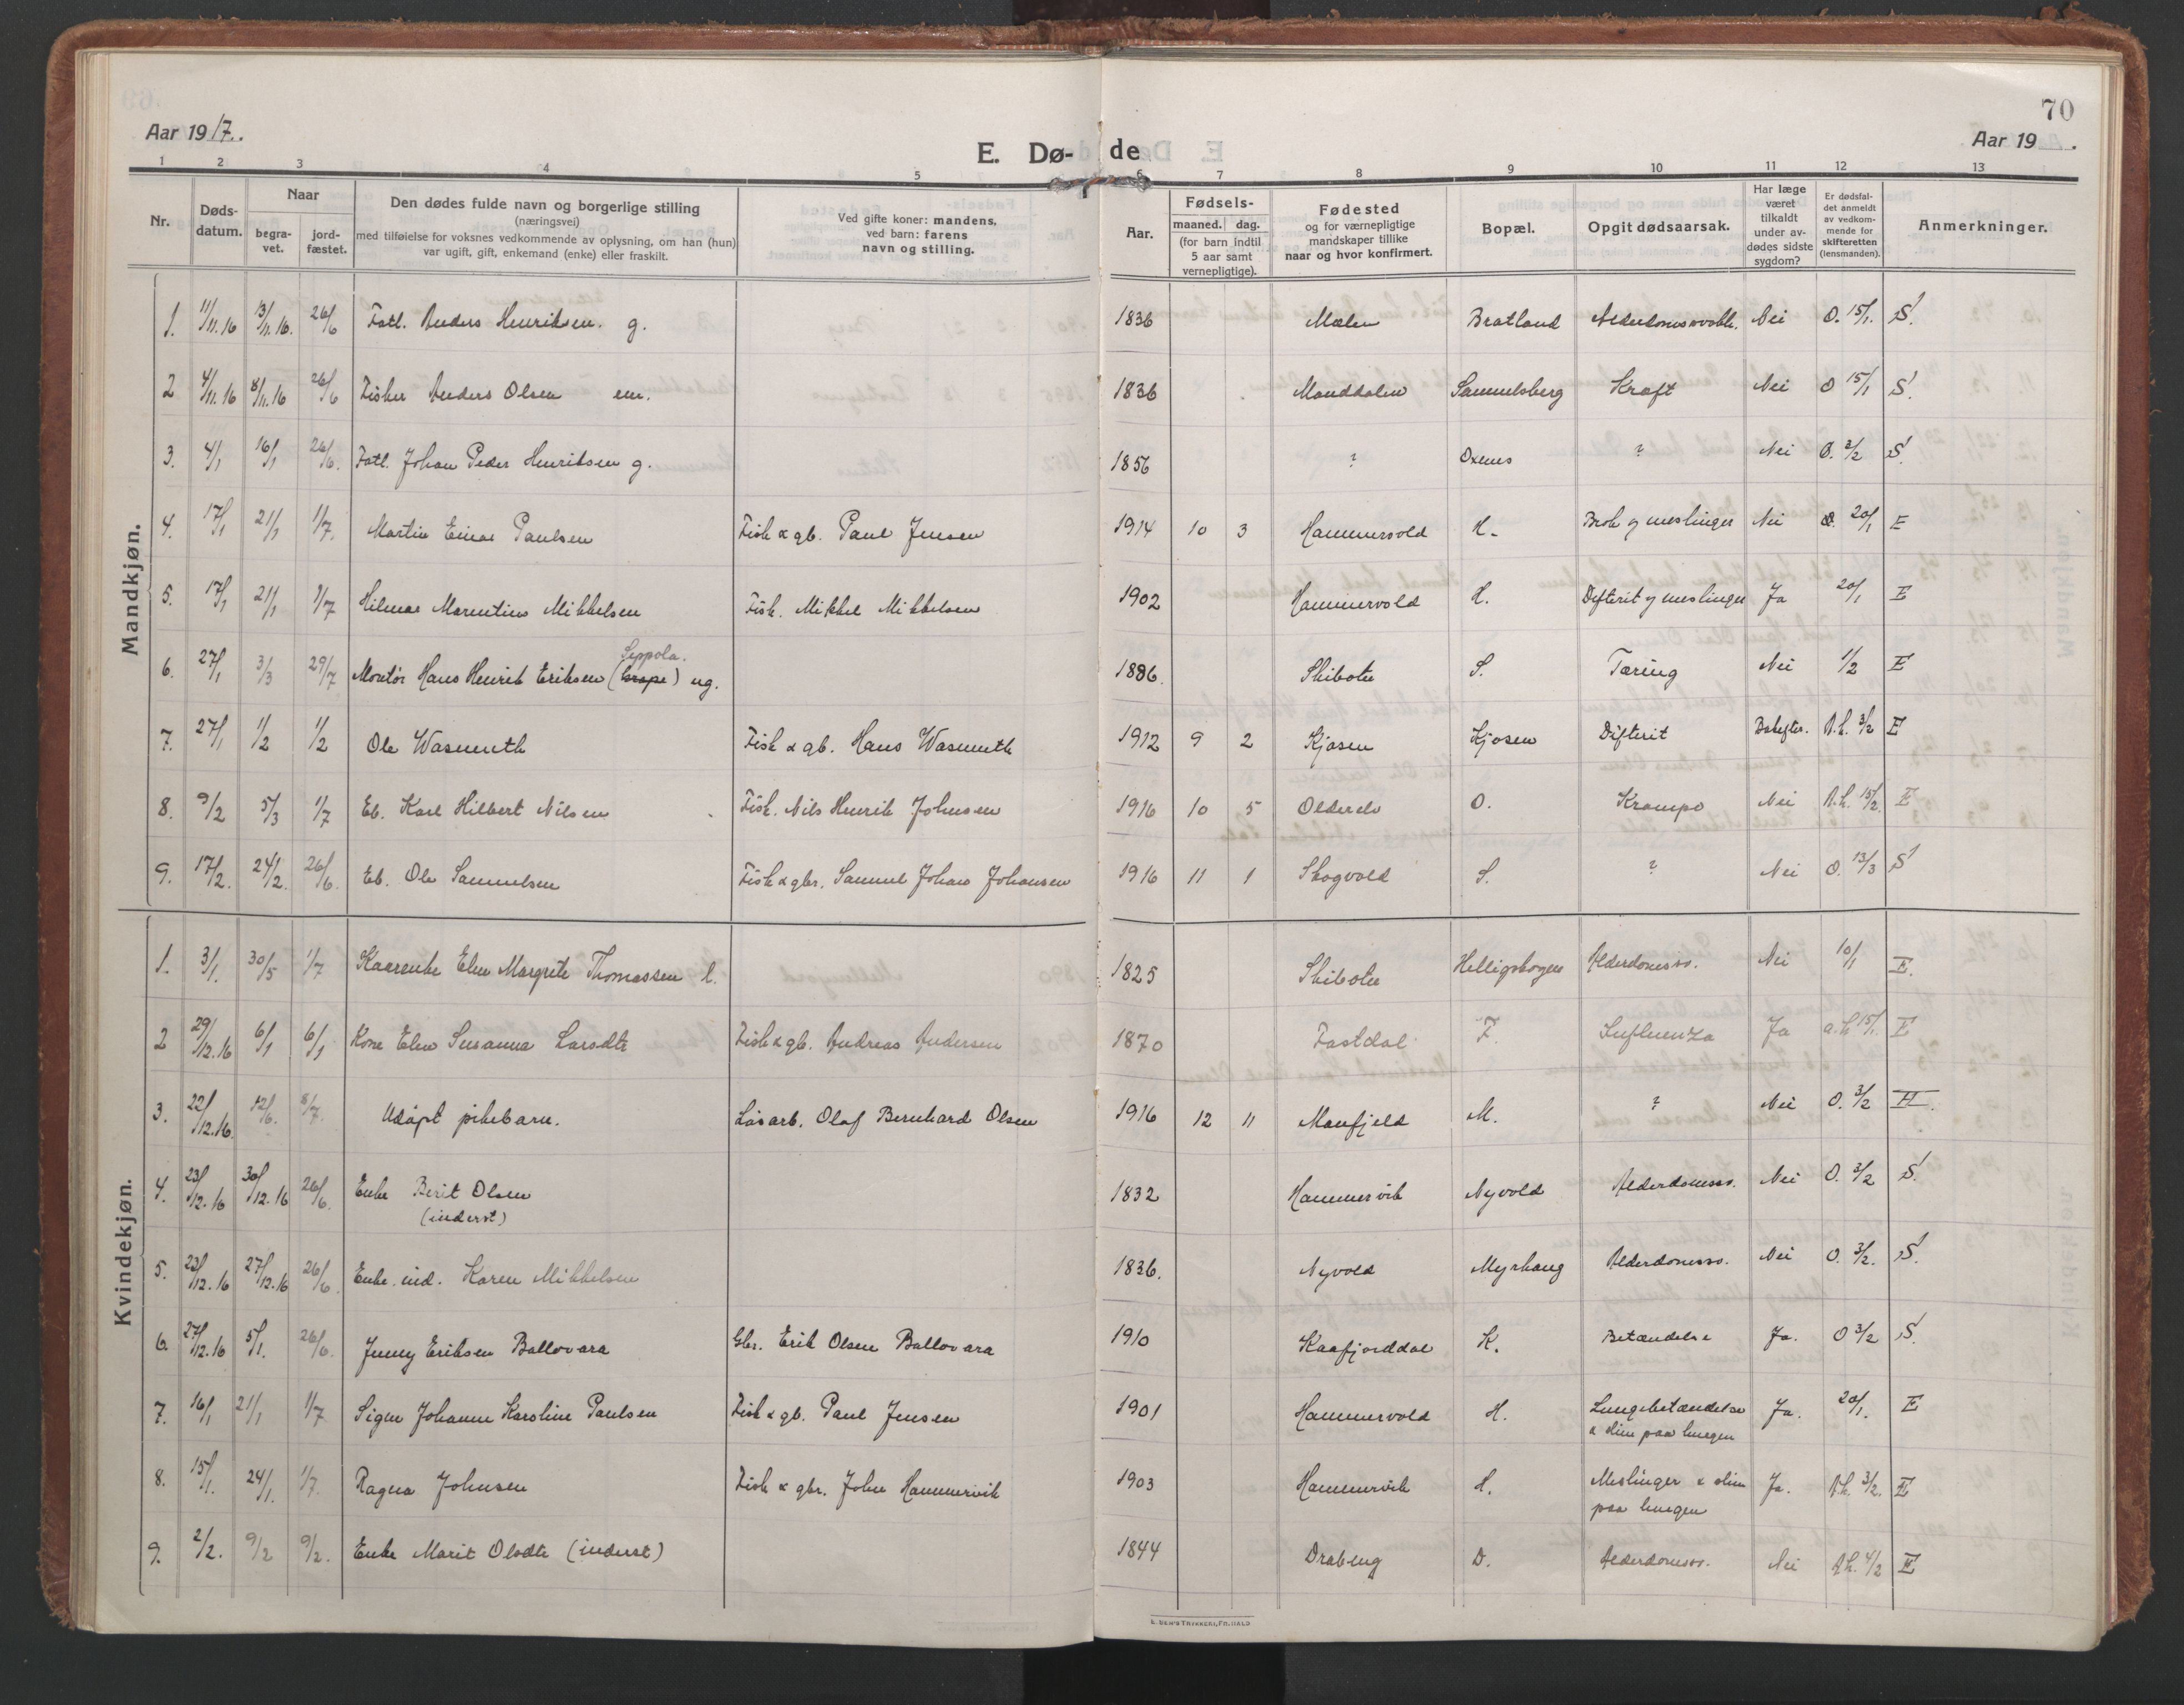 70
Aar 1917.
Aar 19 .
E. Dø- de
1 2 3 4 5 6 7 8 9 10 11 12 13
Nr.
Døds-
datum.
Naar
begra-
vet.
jord-
fæstet.
Den dødes fulde navn og borgerlige stilling
(næringsvei)
med tilføielse for voksnes vedkommende av oplysning, om han (hun)
var ugift, gift, enkemand (enke) eller fraskilt.
Ved gifte koner: mandens,
ved barn: farens
navn og stilling.
Aar.
Fødsels-
maaned. dag.
(for barn indtil
5 aar samt
vernepligtige).
Fødested
og for værnepligtige
mandskaper tillike
naar og hvor konfirmert.
Bopæl.
Opgit dødsaarsak.
Har læge
været
tilkaldt
under av-
dødes sidste
sygdom?
Er dødsfal-
det anmeldt
av vedkom-
mende for
skifteretten
(lensmanden).
Anmerkninger.
Mandkjøn.
1. 11/11.16 13/11.16. 26/6 Fatl. Anders Henriksen. g. 1836 Malen Bratland Alderdomssvakh. Nei O. 15/1. S.
2 4/11.16 8/11.16 26/6 Fisker Anders Olsen em. 1836 Manddalen Samuelsberg Kræft Nei O 15/1 S.
3. 4/1 16/1 26/6. Fatl. Johan Peder Henriksen g. 1856 ? Oxenes ? Nei O. 3/2 S.
4. 17/1 21/1 1/7. Martin Einar Paulsen Fisk & gb. Paul Jensen 1914 10 3 Hammervold H. Brok og meslinger Nei O. 20/1 E
5. 17/1 21/1 1/7 Hilmar Marentius Mikkelsen Fisk. Mikkel Mikkelsen 1902 Hammervold H. Difterit og meslinger Ja 20/1 E
Seppola.
6. 27/1 3/3 29/7 Montör Hans Henrik Eriksen ( ) ug. 1886. Skibotn S. Tæring Nei 1/2 E
7. 27/1 1/2 1/2 Ole Wasmuth Fisk & gb. Hans Wasmuth 1912 9 2 Kjosen Kjosen Difterit Bakefter. A.h. 3/2 E
8. 9/2 5/3 1/7 Eb. Karl Hilbert Nilsen Fisk. Nils Henrik Johnsen 1916 10 5 Olderelv O. Krampe Nei A.h. 15/2. E
9. 17/2. 24/2. 26/6. Eb. Ole Samuelsen Fisk & gbr. Samuel Johan Johansen 1916 11 1 Skogvold S. ? Nei O. 13/3 S
Kvindekjøn.
1. 3/1. 30/5 1/7 Kaarenke Elen Margrete Thomassen l. 1825 Skibotn Helligskogen Alderdomssv. Nei 10/1 E.
2 29/12.16 6/1 6/1 Kone Elen Susanna Larsdtr Fisk & gb. Andreas Andersen 1870 Fastdal F. Influenza Ja a.h 15/1. E
3. 22/12.16. 12/6. 8/7. Udöpt pikebarn. Lösarb. Olaf Bernhard Olsen 1916 12 11 Manfjeld M. ? Nei O. 3/2 H.
4. 23/12.16 30/12.16 26/6. Enke Berit Olsen 1832 Hammervik Nyvold Alderdomssv. Nei O. 3/2 S.
(inderst)
5. 23/12.16 27/12.16 26/6. Enke. ind. Karen Mikkelsen 1836. Nyvold Myrhaug Alderdomssv. Nei O. 3/2. S.
6. 27/12.16 5/1. 26/6. Jenny Eriksen Ballovara Gbr. Erik Olsen Ballovara 1910 Kaafjorddal K. Betændelse Ja. O 3/2 S.
7. 16/1 21/1 1/7 Signe Johanne Karoline Paulsen Fisk & gb. Paul Jensen 1901 Hammervold H. Lungebetændelse Ja. 20/1. E
& slim paa lungen
8. 15/1. 24/1. 1/7. Ragna Johnsen Fisk & gbr. John Hammervik 1903 Hammervik H. Meslinger & slim Ja. A.h. 3/2. E
paa lungen
9. 2/2. 9/2 9/2. Enke Marit Olsdtr (inderst) 1844 Drabeng D. Alderdomssv. Nei A.h. 4/2 E